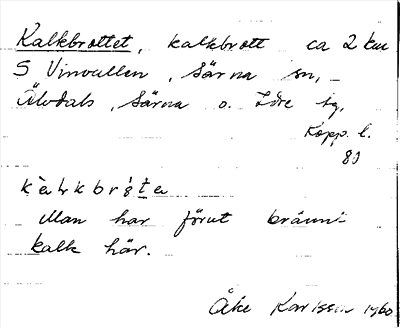 Kalkbrottet, kalkbrott ca 2 km
S Vinvallen, Särna sn,
Älvdals, Särna o. Idre tg,
Kopp. l.
83
Man har förut bränni
kalk här.
Åke Karlsson 1960